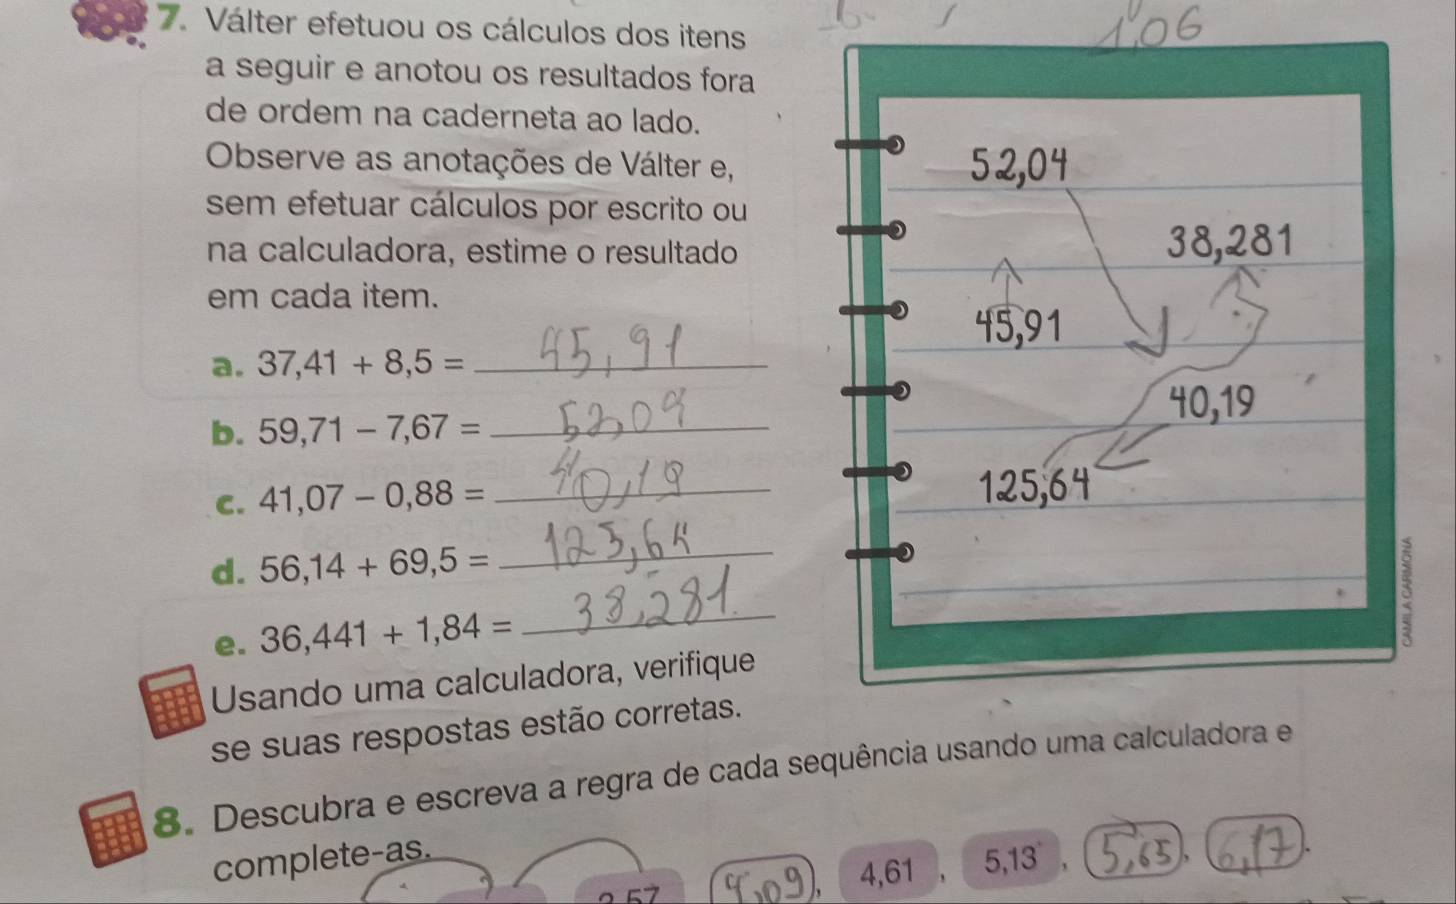 7. Válter efetuou os cálculos dos itens
a seguir e anotou os resultados fora
de ordem na caderneta ao lado.
Observe as anotações de Válter e,
sem efetuar cálculos por escrito ou
na calculadora, estime o resultado
em cada item.
a. 37,41 + 8,5 = 45,91
b. 59,71 − 7,67 = 52,04
c. 41,07 − 0,88 = 40,19
d. 56,14 + 69,5 = 125,64
e. 36,441 + 1,84 = 38,281
Usando uma calculadora, verifique
se suas respostas estão corretas.
1,06
52,04
38,281
45,91
40,19
125,64
CAMILA CARMONA
8. Descubra e escreva a regra de cada sequência usando uma calculadora e
complete-as.
4,09, 4,61, 5,13, 5,65, 6,17.